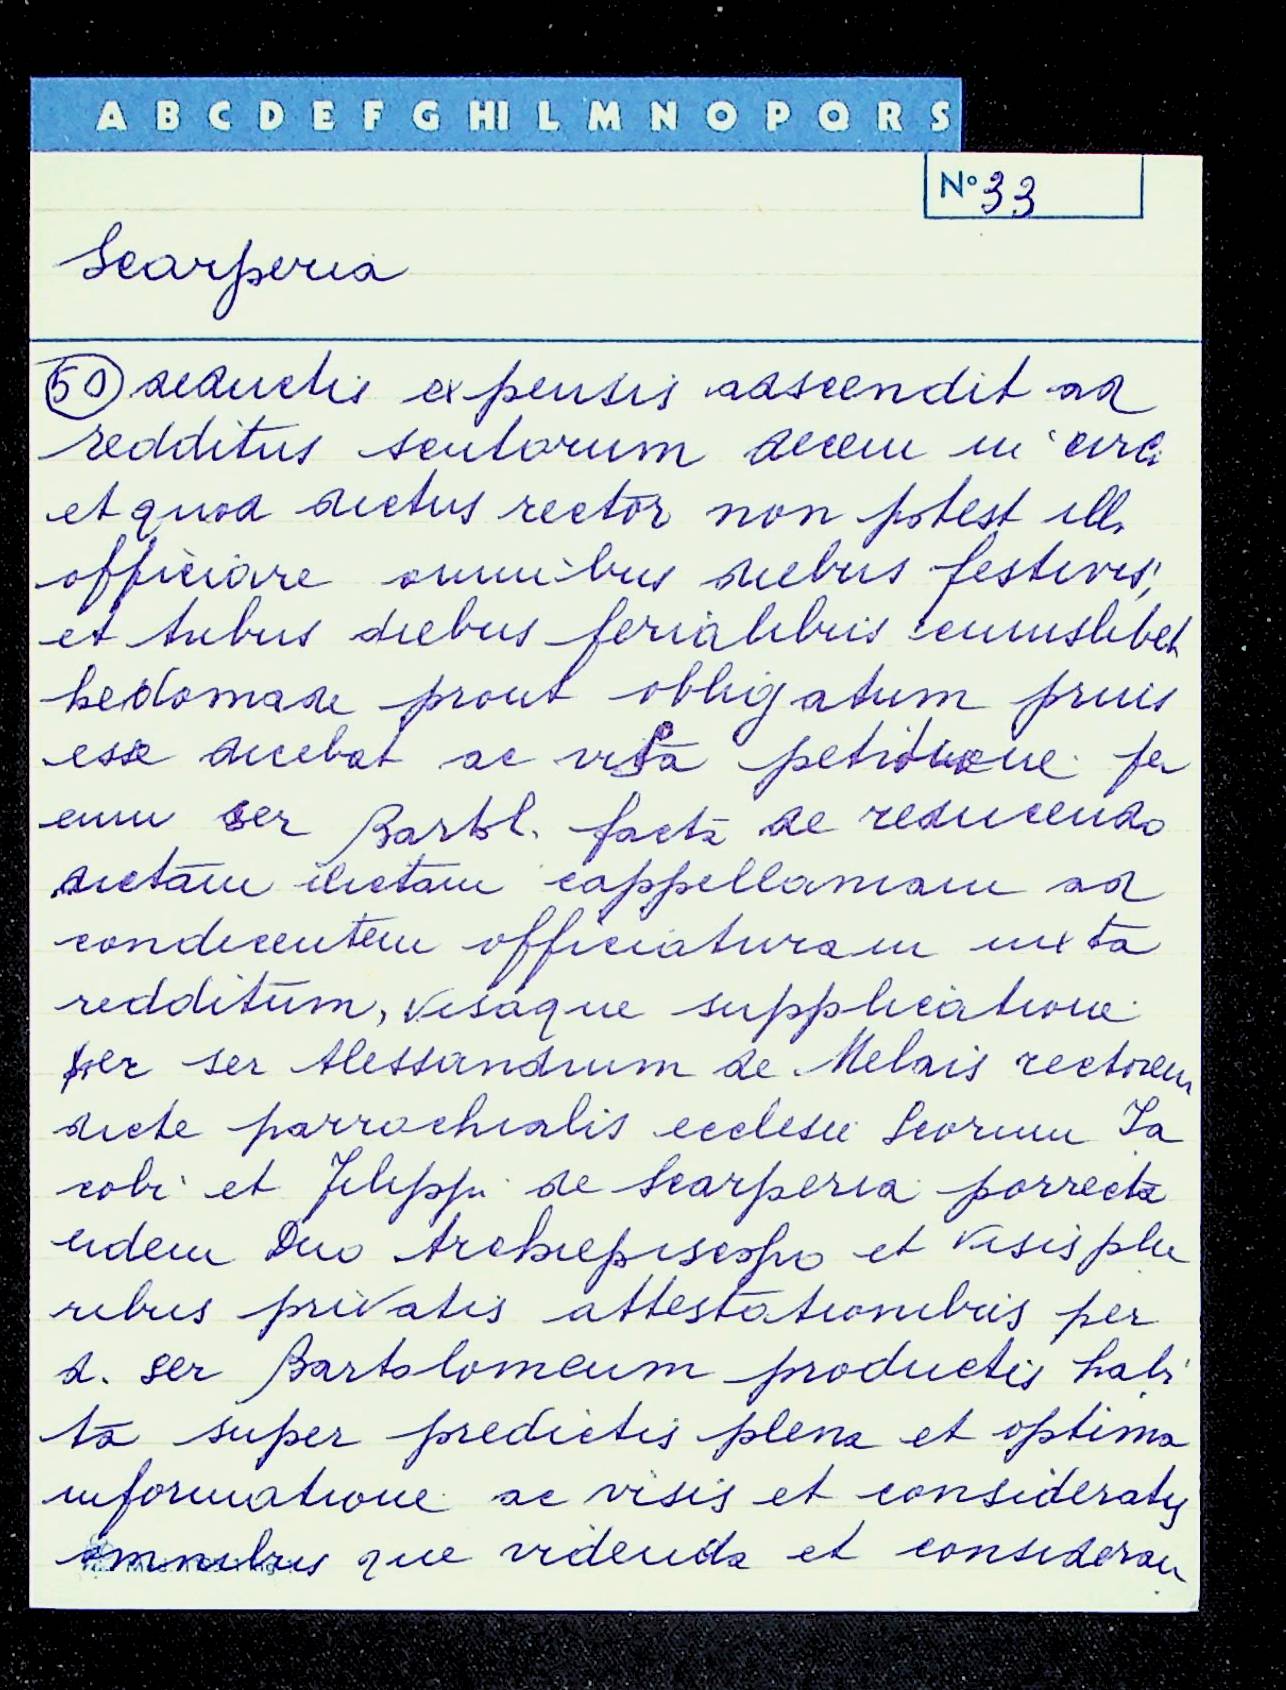 A B C D E F G HI L M N O P Q R S
N° 33
Scarperia
50 deductis expensis adscendit ad
redditus scutorum decem in circa
et quod dictus rector non potest ill.
officiare omnibus diebus festivis,
et tribus diebus ferialibus cuiuslibet
hedomade prout obligatum prius
esse dicebat ac visa petitione per
eum ser Bartol. facta de reducendo
dictam dictam cappellaniam ad
condecentem officiaturam iuxta
redditum, visaque supplicatione
per ser Alessandrum de Melais rectorem
dicte parrochialis ecclesie Scorum Ja
cobi et Filippi de Scarperia porrecta
eidem Dno Archiepiscopo et visis plu
ribus privatis attestationibus per
d. ser Bartolomeum productis habi
ta super predictis plena et optima
informatione ac visis et consideratis
omnibus que videnda et consideran